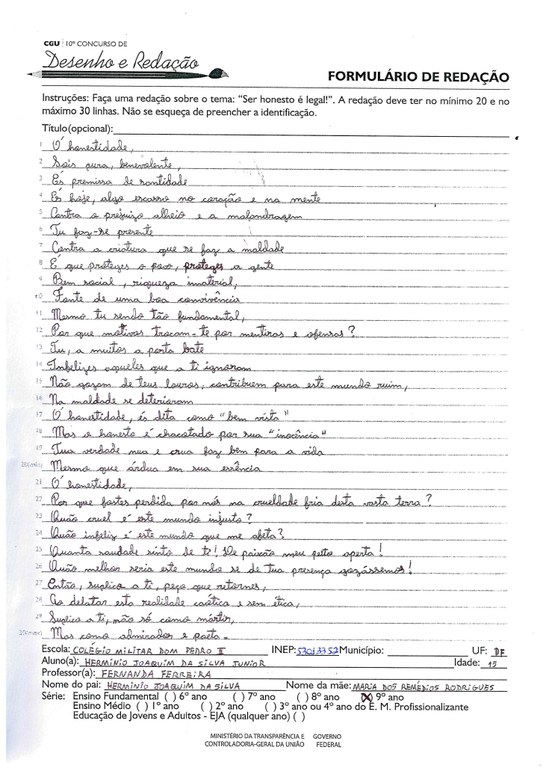 CGU 10º CONCURSO DE
Desenho e Redação
FORMULÁRIO DE REDAÇÃO
Instruções: Faça uma redação sobre o tema: "Ser honesto é legal!". A redação deve ter no mínimo 20 e no
máximo 30 linhas. Não se esqueça de preencher a identificação.
Título(opcional):
1 Ó honestidade,
2 Sois pura, benevolente,
3 És premissa de santidade
4 És hoje, algo escasso no coração e na mente
5 Contra o prejuízo alheio e a malandragem
6 Tu faz-se presente
7 Contra a criatura que se faz a maldade
8 É que proteges o povo, proteges a gente
9 Bem social, riqueza imaterial,
10 Fonte de uma boa convivência
11 Mesmo tu sendo tão fundamental,
12 Por que motivos trocam-te por mentiras e ofensas?
13 Tu, a muitos a porta bate
14 Infelizes aqueles que a ti ignoram
15 Não gozam de teus louros, contribuem para este mundo ruim,
16 Na maldade se deterioram
17 Ó honestidade, és dita como "bem vista"
18 Mas o honesto é chacotado por sua "inocência"
19 Tua verdade nua e crua faz bem para a vida
Mesmo que árdua em sua essência
21 Ó honestidade,
22 Por que fostes perdida por nós na crueldade fria desta vasta terra?
23 Quão cruel é este mundo injusto?
24 Quão infeliz é este mundo que me afeta?
25 Quanta saudade sinto de ti! De paixão meu peito aperta!
26 Quão melhor seria este mundo se de tua presença gozássemos!
27 Então, suplico a ti, peço que retornes,
28 Ao delatar esta realidade caótica e sem ética,
29 Suplico a ti, não só como mártir,
Mas como admirador e poeta.
Escola: COLÉGIO MILITAR DOM PEDRO II INEP: 53013352 Município: UF: DF
Aluno(a): HERMÍNIO JOAQUIM DA SILVA JUNIOR Idade: 15
Professor(a): FERNANDA FERREIRA
Nome do pai: HERMÍNIO JOAQUIM DA SILVA Nome da mãe: MARIA DOS REMÉDIOS RODRIGUES
Série: Ensino Fundamental ( ) 6º ano ( ) 7º ano ( ) 8º ano (X) 9º ano
Ensino Médio ( ) 1º ano ( ) 2º ano ( ) 3º ano ou 4º ano do E. M. Profissionalizante
Educação de Jovens e Adultos - EJA (qualquer ano) ( )
MINISTÉRIO DA TRANSPARÊNCIA E GOVERNO
CONTROLADORIA-GERAL DA UNIÃO FEDERAL